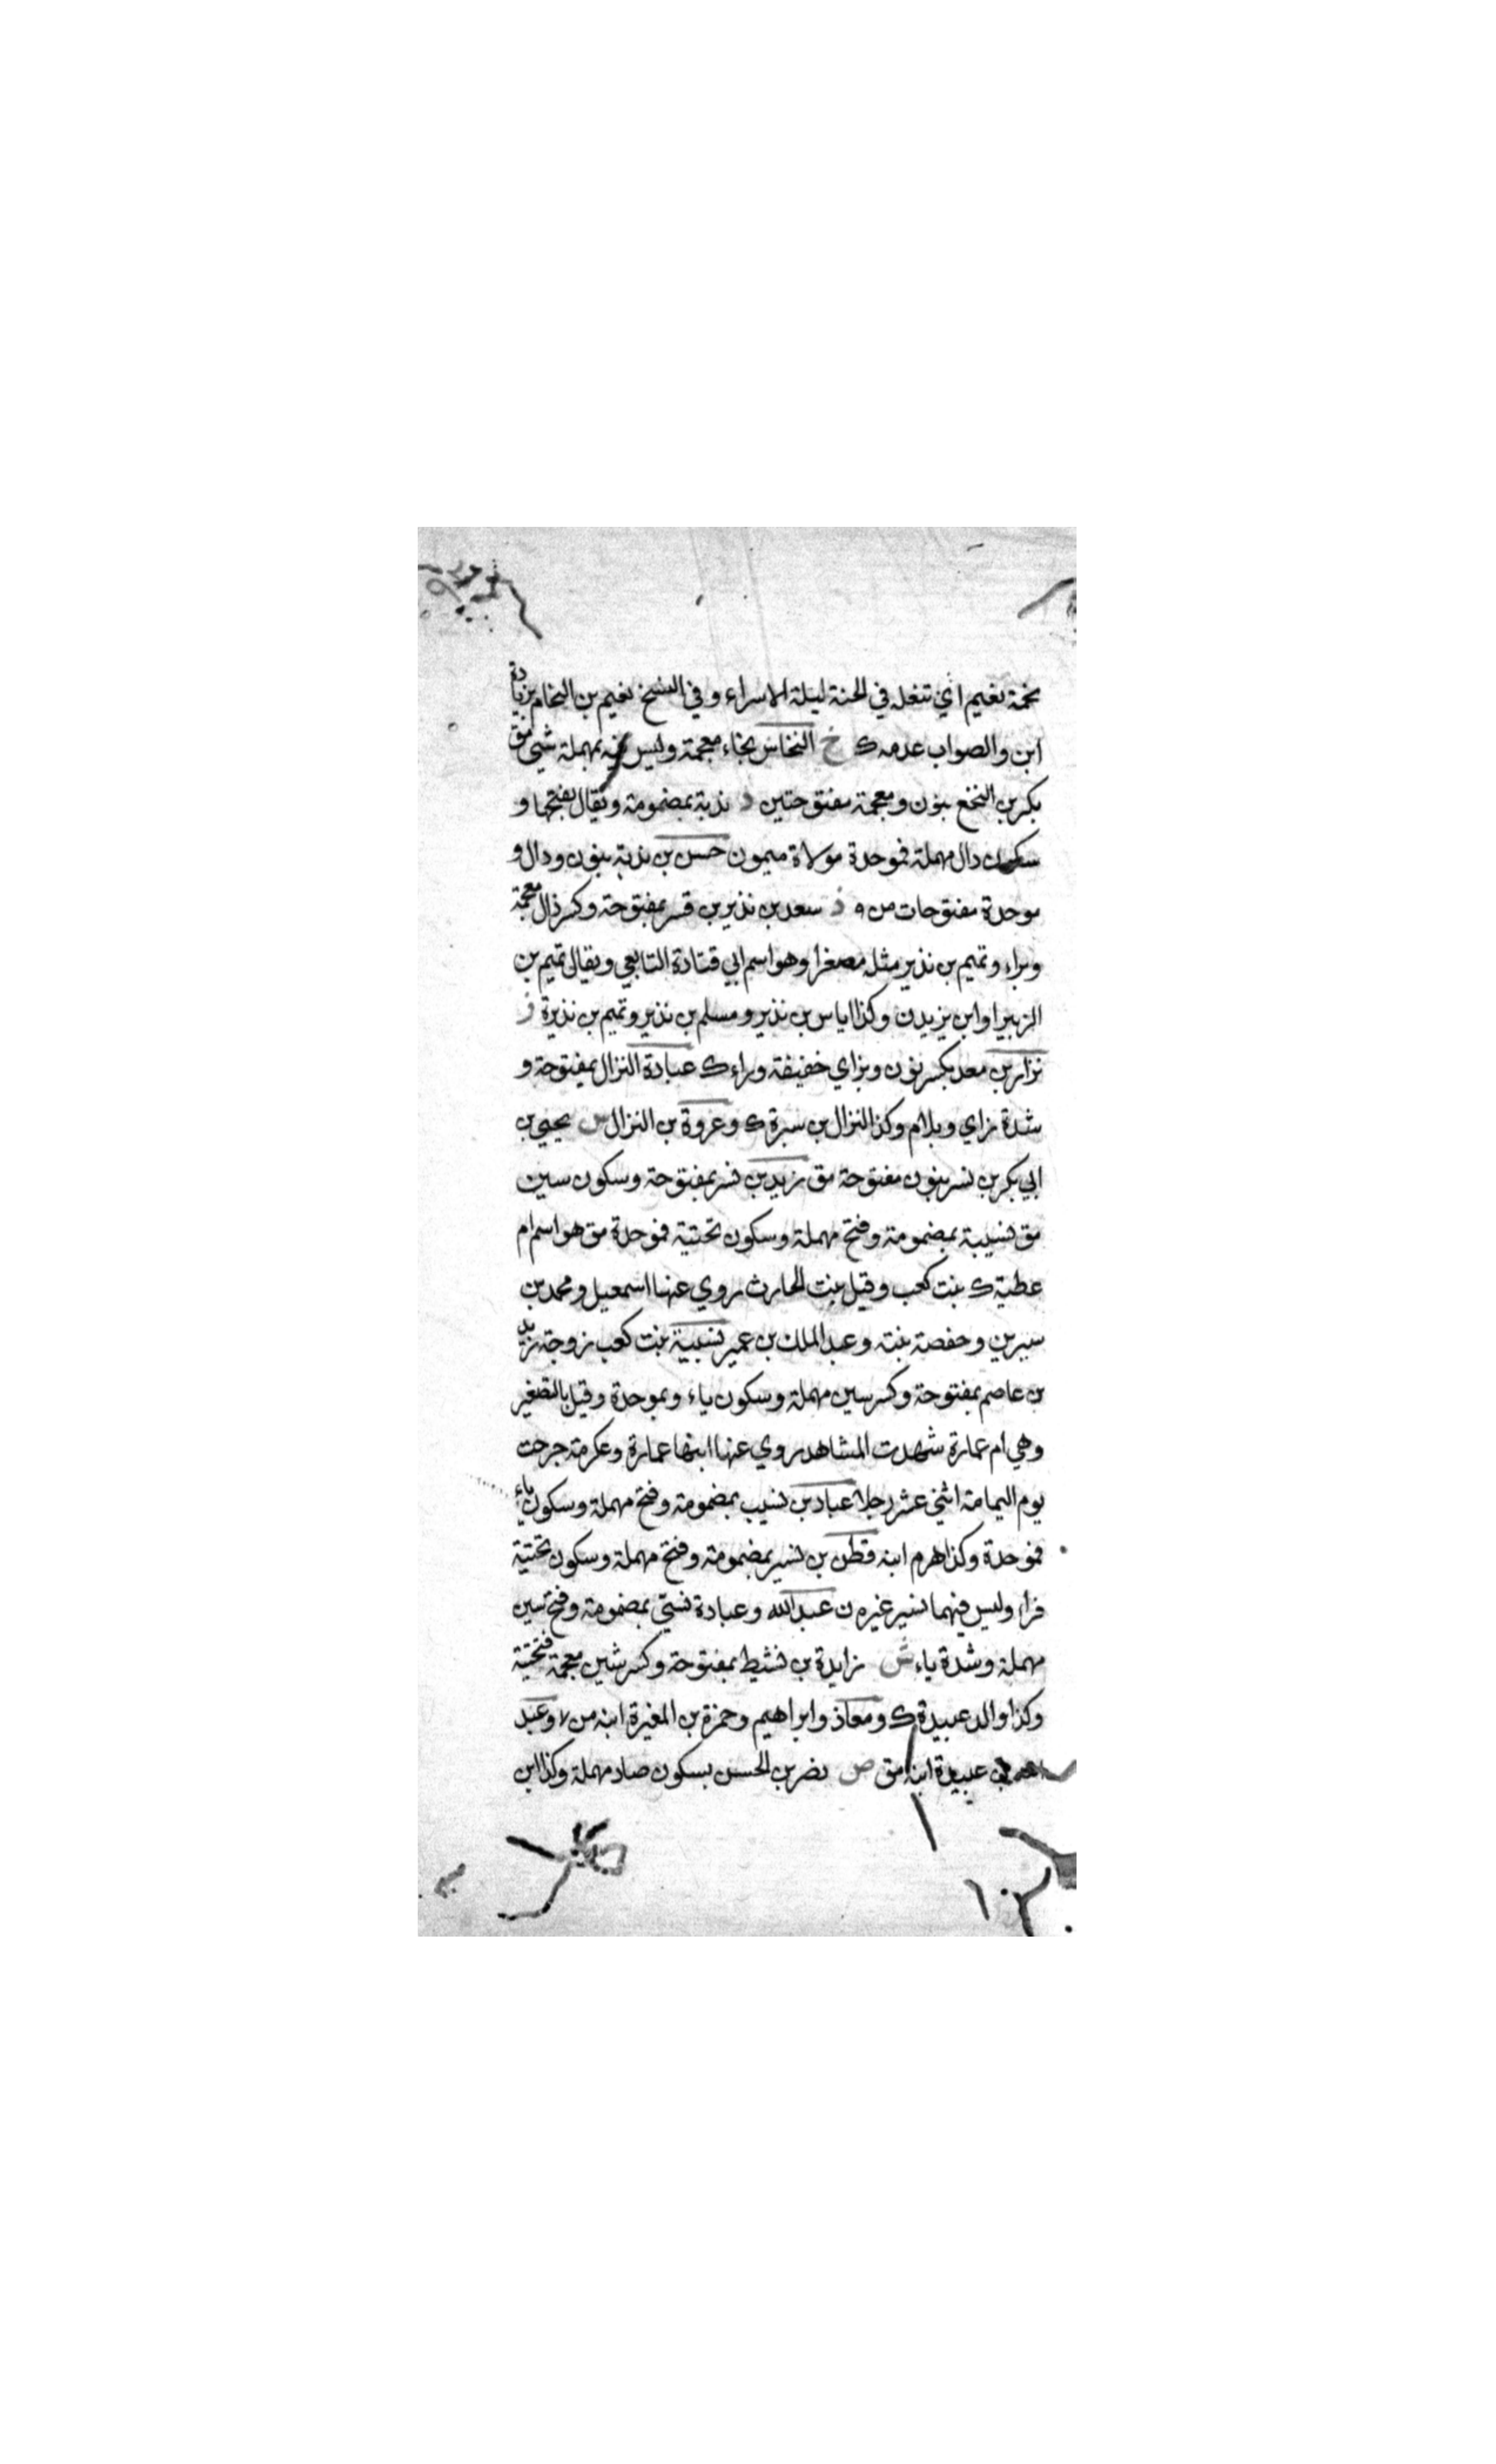 نحمة نعيم اي تنغله في الجنة ليلة الاسراء وفي النسخ نعيم بن النحام بزيادة
ابن والصواب عدمه ك خ النخاس بخاء معجمة وليس فيه بمهملة شيئ مق
بكر بن النخع بنون ومعجمة مفتوحتين د ندبة بمضمومة ويقال بفتحها و
سكون دال مهملة فموحدة مولاة ميمون حسن بن ندبة بنون ودال و
موحدة مفتوحات من ه ذ سعد بن نذير بن قسر بمفتوحة وكسر ذال معجمة
وبراء وتميم بن نذير مثله مصغرا وهو اسم ابي قتادة التابعي ويقال تميم بن
الزبير او ابن يزيد ن وكذا اياس بن نذير ومسلم بن نذير وتميم بن نذيرة ز
نزار بن معد بكسر نون وبزاي خفيفة وراء ك عبادة النزال بمفتوحة و
شدة زاي وبلام وكذا النزال بن سبرة ك وعروة بن النزال س يحيى بن
ابي بكر بن نسر بنون مفتوحة مق زيد بن نسر بمفتوحة وسكون سين
مق نسيبة بمضمومة وفتح مهملة وسكون تحتية فموحدة مق هو اسم ام
عطية ك بنت كعب وقيل بنت الحارث روي عنها اسمعيل ومحمد بن
سيرين وحفصة بنته وعبد الملك بن عمير نسيبة بنت كعب زوجة زيد
بن عاصم بمفتوحة وكسر سين مهملة وسكون ياء وبموحدة وقيل بالتصغير
وهي ام عمارة شهدت المشاهد روي عنها ابنها عمارة وعكرمة جرحت
يوم اليمامة اثني عشر رجلا عباد بن نسيب بمضمومة وفتح مهملة وسكون ياء
فموحدة وكذا هرم ابنه قطن بن نسير بمضمومة وفتح مهملة وسكون تحتية
فراء وليس فيهما نسير غيره ن عبد الله وعبادة نسي بمضمومة وفتح سين
مهملة وشدة ياء ش زايدة بن نشيط بمفتوحة وكسر شين معجمة فتحتية
وكذا والد عبيدة ك ومعاذ وابراهيم وحمزة بن المغيرة ابنه من لا وعبد
بن عبيدة ابنه مق ص نصر بن الحسن بسكون صاد مهملة وكذا ابن